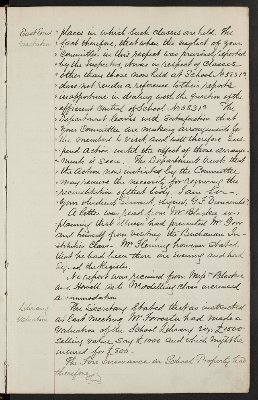 places in which such classes are held. The
fact therefore, that when the neglect of your
Committee in this respect was previously reported
by the Inspectors, draws in respect of classes
other than those now held at School No 5531
does not render a reference to their reports
inopportune in dealing with the question of the
efficient control of School No 5531. The
Department learns with satisfaction that
your Committee are making arrangements for
the members to visit and will therefore sus-
pend action until the effect of those arrange-
ments is seen. The Department trusts that
the action now initiated by the Committee
may remove the necessity for requiring the
reconstitution of that body. I am Sir
your obedient Servant, signed
A letter was read from Mr ex-
plaining that illness had prevented Mr
and himself from visiting the
Class. Mr Fleming however stated
that he had been there one evening and had
signed the Register.
No report was received from Mess
and as to Modelling Class increased
accommodation
Library
Valuation
The Secretary stated that as instructed
at last meeting Mr had made a
valuation of the School Library viz: £1500
selling value, say £1000 and which might be
insured for £800.
The Fire Insurance on School Property had
therefore